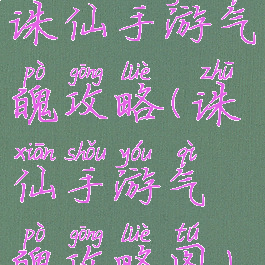 诛仙手游气
pò gōng lüè zhū
魄攻略(诛
xiān shǒu yóu qì
仙手游气
pò gōng lüè tú
魄攻略图)